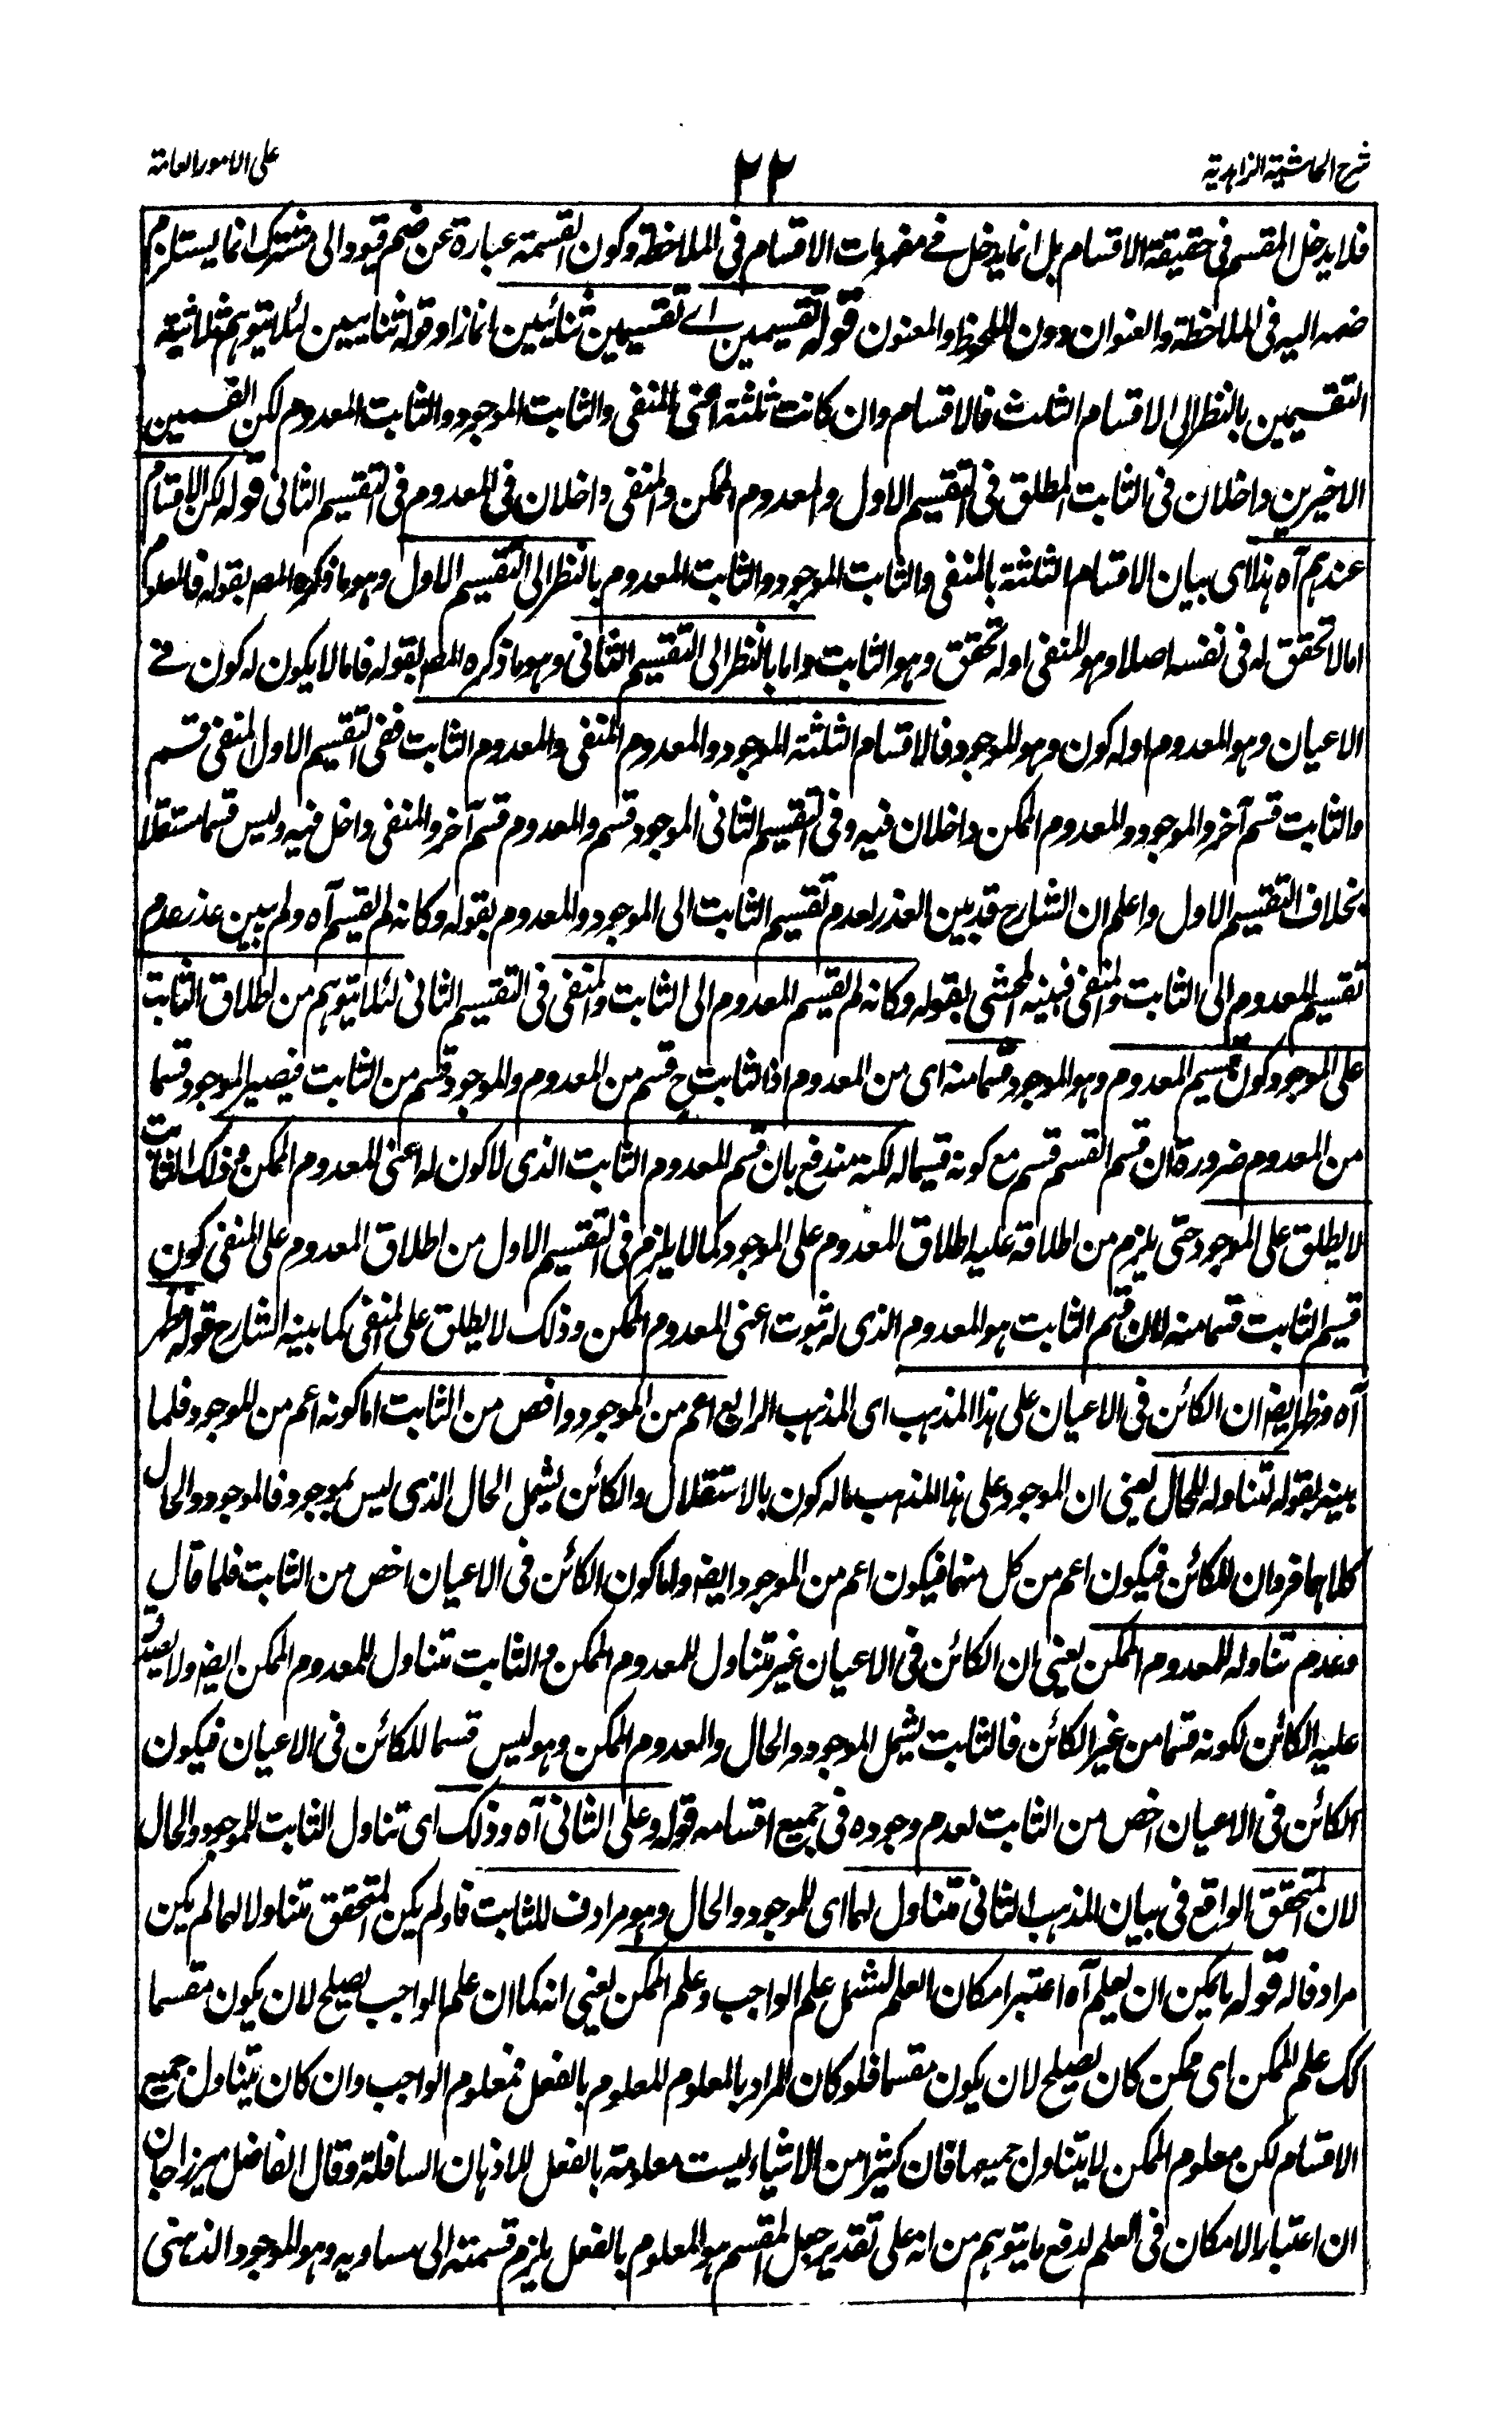 شرح الحاشية الزاهدية
٢٢
على الامور العامة
فلا يدخل المقسم فى حقيقة الاقسام بل انما يدخل فے مفهومات الاقسام فى الملاحظة وكون القسمة عبارة عن ضم قيود الى مشترك انما يستلزم
ضمه اليه فى الملاحظة والعنوان دون الملحوظ والمعنون قوله تقسيمين اے تقسيمين ثنائيين انما زاد قوله ثنائيين لئلا يتوهم ثلاثية
التقسيمين بالنظر الى الاقسام الثلث فالاقسام وان كانت ثلثة اعنى المنفى والثابت الموجود والثابت المعدوم لكن القسمين
الاخيرين داخلان فى الثابت المطلق فى التقسيم الاول والمعدوم الممكن والمنفى داخلان فى المعدوم فى التقسيم الثانى قوله لكن الاقسام
عندهم آه هذا اى بيان الاقسام الثلثة بالمنفى والثابت الموجود والثابت المعدوم بالنظر الى التقسيم الاول وهو ما ذكره المصـ بقوله فالمعلوم
اما لا تحقق له فى نفسه اصلا وهو المنفى او له تحقق وهو الثابت واما بالنظر الى التقسيم الثانى وهو ما ذكره المصـ بقوله فاما لا يكون له كون فے
الاعيان وهو المعدوم او له كون وهو الموجود فالاقسام الثلثة الموجود والمعدوم المنفى والمعدوم الثابت ففى التقسيم الاول المنفى قسم
والثابت قسم آخر والموجود والمعدوم الممكن داخلان فيه وفى التقسيم الثانى الموجود قسم والمعدوم قسم آخر والمنفى داخل فيه وليس قسما مستقلا
بخلاف التقسيم الاول واعلم ان الشارح قد بين العذر لعدم تقسيم الثابت الى الموجود والمعدوم بقوله وكانه لم يقسم آه ولم يبين عذر عدم
تقسيم المعدوم الى الثابت والمنفى فبينه المحشى بقوله وكانه لم يقسم المعدوم الى الثابت والمنفى فى التقسيم الثانى لئلا يتوهم من اطلاق الثابت
على الموجود كون قسيم المعدوم وهو الموجود قسما منه اى من المعدوم اذ الثابت ح قسم من المعدوم والموجود قسم من الثابت فيصير الموجود قسما
من المعدوم ضرورة ان قسم القسم قسم مع كونه قسيما له لكنه مندفع بان قسم المعدوم الثابت الذى لا كون له اعنى المعدوم الممكن وذلك الثابت
لا يطلق على الموجود حتى يلزم من اطلاقه عليه اطلاق المعدوم على الموجود كما لا يلزم فى التقسيم الاول من اطلاق المعدوم على المنفى كون
قسيم الثابت قسما منه لان قسم الثابت هو المعدوم الذى له ثبوت اعنى المعدوم الممكن وذلك لا يطلق على المنفى كما بينه الشارح قوله فظهر
آه وظهر ايضـ ان الكائن فى الاعيان على هذا المذهب اى المذهب الرابع اعم من الموجود واخص من الثابت اما كونه اعم من الموجود فلما
بينه بقوله لتناوله للحال يعنى ان الموجود على هذا المذهب ما له كون بالاستقلال والكائن يشمل الحال الذى ليس بموجود فالموجود والحال
كلاهما فردان للكائن فيكون اعم من كل منهما فيكون اعم من الموجود ايضـ واما كون الكائن فى الاعيان اخص من الثابت فلما قال
وعدم تناوله للمعدوم الممكن يعنى ان الكائن فى الاعيان غير متناول للمعدوم الممكن والثابت متناول للمعدوم الممكن ايضـ ولا يصدق
عليه الكائن لكونه قسما من غير الكائن فالثابت يشمل الموجود والحال والمعدوم الممكن وهو ليس قسما للكائن فى الاعيان فيكون
الكائن فى الاعيان اخص من الثابت لعدم وجوده فى جميع اقسامه قوله وعلى الثانى آه وذلك اى تناول الثابت للموجود والحال
لان المتحقق الواقع فى بيان المذهب الثانى متناول لهما اى للموجود والحال وهو مرادف للثابت فلو لم يكن المتحقق متناولا لهما لم يكن
مرادفا له قوله ما يمكن ان يعلم آه اعتبر امكان العلم ليشمل علم الواجب وعلم الممكن يعنى انه كما ان علم الواجب يصلح لان يكون مقسما
كك علم الممكن اى ممكن كان يصلح لان يكون مقسما فلو كان المراد بالمعلوم المعلوم بالفعل فمعلوم الواجب وان كان يتناول جميع
الاقسام لكن معلوم الممكن لا يتناول جميعها فان كثيرا من الاشياء ليست معلومة بالفعل للاذهان السافلة وقال الفاضل ميرزا جان
ان اعتبار الامكان فى العلم لدفع ما يتوهم من انه على تقدير جعل المقسم هو المعلوم بالفعل يلزم قسمته الى مساويه وهو الموجود الذهنى